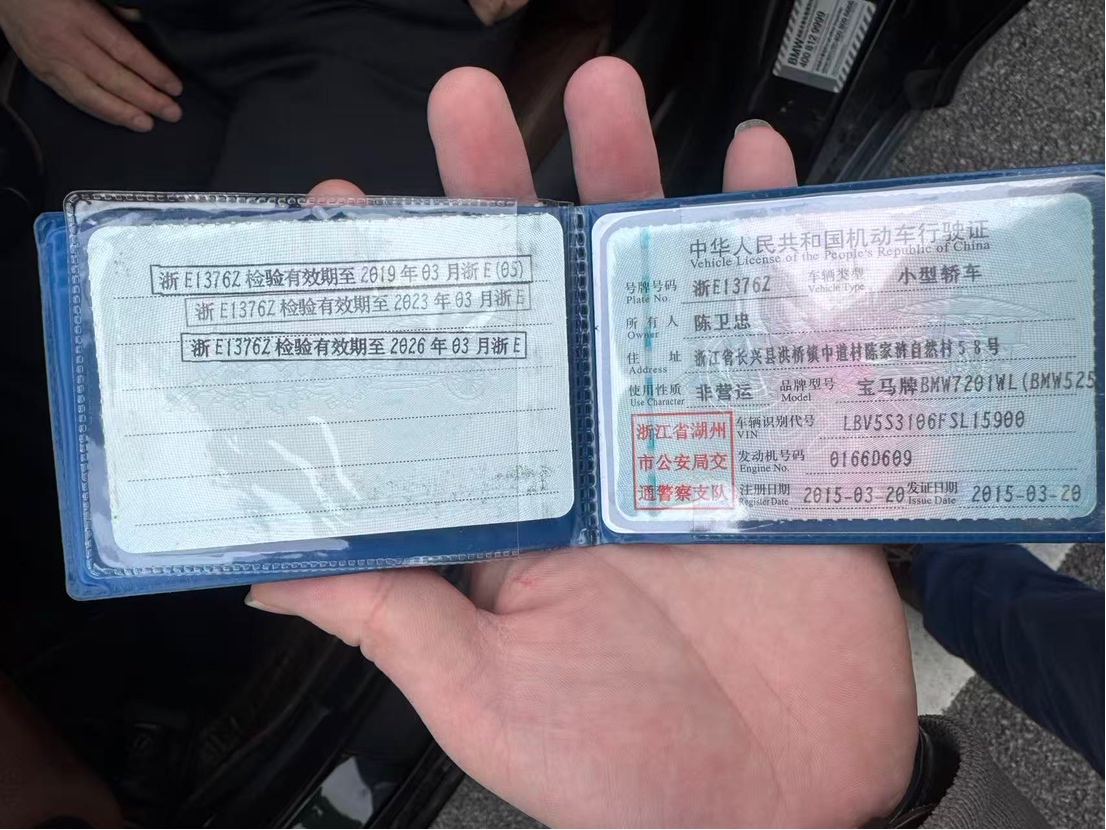 浙E1376Z 检验有效期至2019年03月浙E(05)
浙E1376Z 检验有效期至2023年03月浙E
浙E1376Z 检验有效期至2026年03月浙E
中华人民共和国机动车行驶证
Vehicle License of the People's Republic of China
号牌号码 浙E1376Z 车辆类型 小型轿车
Plate No. Vehicle Type
所有人 陈卫忠
Owner
住址 浙江省长兴县洪桥镇中道村陈家 自然村58号
Address
使用性质 非营运 品牌型号 宝马牌BMW7201WL(BMW525
Use Character Model
浙江省湖州
市公安局交
通警察支队
车辆识别代号 LBV5S3106FSL15900
VIN
发动机号码 0166D609
Engine No.
注册日期 2015-03-20 发证日期 2015-03-20
Register Date Issue Date
BMW
400 812 9999